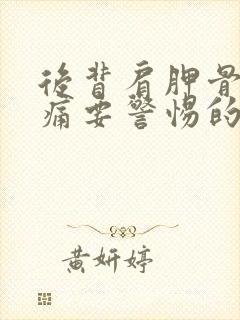 後背肩胛骨
痛要警惕的
黄妍婷